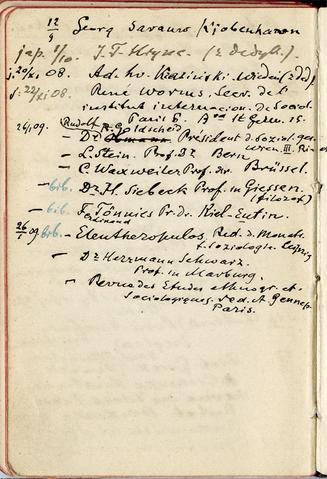 12/9 Georg Kjobenhaven
jap. J. F.
08. Ad. hv. Wiedeń
22/XI 08. René Worms, Secr. de l'
institut internacion. de Sociol.
Paris 5. 15.
26/1 09. Rudolf Goldscheid
- Dr Präsident d. Soziol. ges.
Wien. III.
- L. Stein. Prof. Dr Bern
- E. Waxweiler Prof. dr. Brüssel.
- bib. Dr H. Siebeck Prof in Giessen.
(filozof)
- bib. F. Tönnies Pr. Dr. Kiel-Eutin.
26/1 09 bib. - Eleutheropulos, Red. d. Monatt.
f. Soziologie. Leipzig
- Dr Herrmann Schwarz.
Prof. in Marburg.
- Revue des Etudes ethnogr. et
Sociologiques. red. A. Gennep.
Paris.